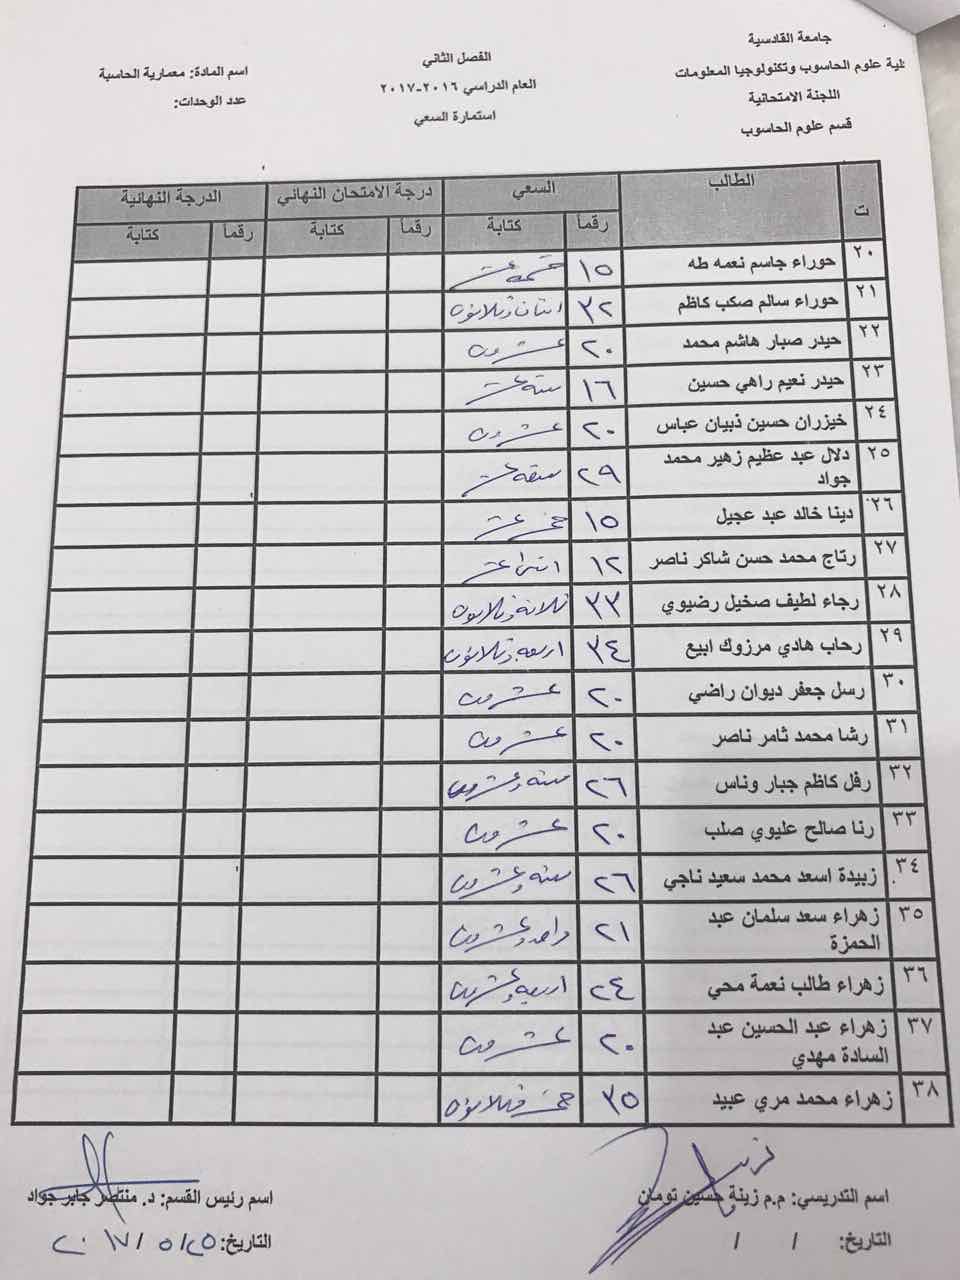 جامعة القادسية
لية علوم الحاسوب وتكنولوجيا المعلومات
اللجنة الامتحانية
قسم علوم الحاسوب
الفصل الثاني
العام الدراسي ٢٠١٦-٢٠١٧
استمارة السعي
اسم المادة: معمارية الحاسبة
عدد الوحدات:
ت الطالب السعي درجة الامتحان النهائي الدرجة النهائية
رقماً كتابة رقماً كتابة رقماً كتابة
٢٠ حوراء جاسم نعمه طه ١٥ خمسة عشر
٢١ حوراء سالم صكب كاظم ٣٢ اثنان وثلاثون
٢٢ حيدر صبار هاشم محمد ٢٠ عشرون
٢٣ حيدر نعيم راهي حسين ١٦ ستة عشر
٢٤ خيزران حسين ذبيان عباس ٢٠ عشرون
٢٥ دلال عبد عظيم زهير محمد جواد ٢٩
٢٦ دينا خالد عبد عجيل ١٥ خمس عشر
٢٧ رتاج محمد حسن شاكر ناصر ١٢ اثنى عشر
٢٨ رجاء لطيف صخيل رضيوي ٣٣ ثلاثة وثلاثون
٢٩ رحاب هادي مرزوك ابيع ٣٤ اربعه وثلاثون
٣٠ رسل جعفر ديوان راضي ٢٠ عشرون
٣١ رشا محمد ثامر ناصر ٢٠ عشرون
٣٢ رفل كاظم جبار وناس ٢٦ ستة وعشرون
٣٣ رنا صالح عليوي صلب ٢٠ عشرون
٣٤ زبيدة اسعد محمد سعيد ناجي ٢٦ ستة وعشرون
٣٥ زهراء سعد سلمان عبد الحمزة ٢١ واحد وعشرون
٣٦ زهراء طالب نعمة محي ٢٤ اربعه وعشرون
٣٧ زهراء عبد الحسين عبد السادة مهدي ٢٠ عشرون
٣٨ زهراء محمد مري عبيد ٣٥ خمس وثلاثون
اسم التدريسي: م.م زينة حسين تومان
التاريخ: / /
اسم رئيس القسم: د. منتصر جابر جواد
التاريخ: ٢٥/٥/٢٠١٧